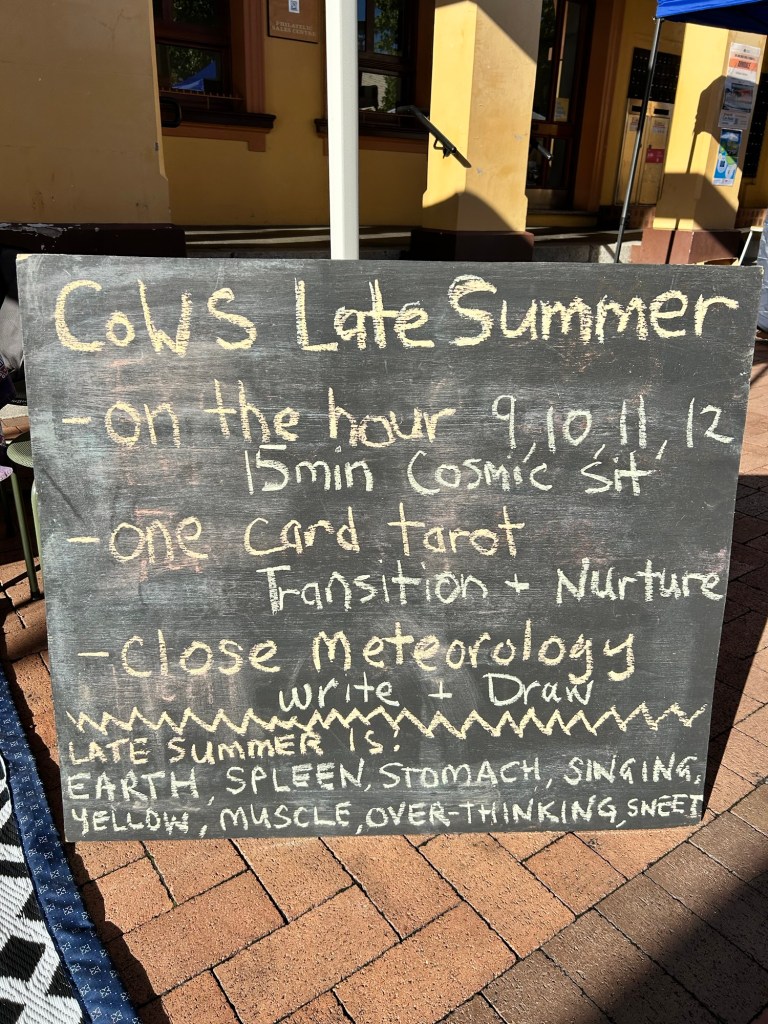 PHILATELIC
SALES CENTRE
CoWS Late Summer
- on the hour 9, 10, 11, 12
15min Cosmic sit
- one card tarot
Transition + Nurture
- Close Meteorology
write + Draw
LATE SUMMER IS:
EARTH, SPLEEN, STOMACH, SINGING,
YELLOW, MUSCLE, OVER-THINKING, SWEET